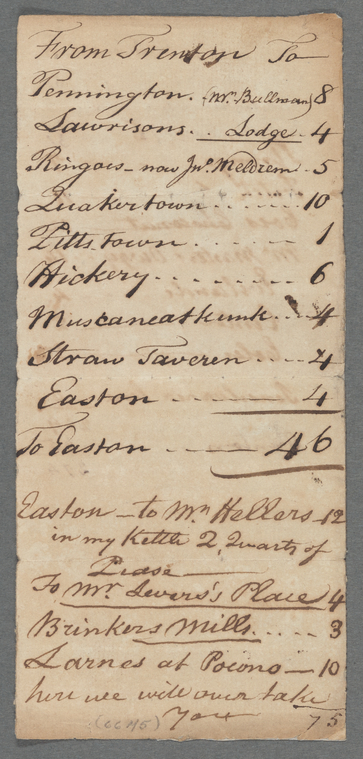 From Trenton To
Pennington. (Mr. Bullman) 8
Lawrisons. . Lodge. 4
Ringos - now Jno. Meldrem . 5
Quakertown . . . . . . 10
Pittstown . . . . . . 1
Hickery . . . . . . . . 6
Muscaneatkunk . . . 4
Straw Taveren . . . . 4
Easton - - - - - 4
To Easton - - - - 46
Easton - to Mr. Hellers - 12
in my Kettle 2, Quarts of
Pease
To Mr. Levers's Place 4
Brinkers Mills . . . . . 3
Larnes at Pocono - 10
here we will over take
You 75
(CCMS)